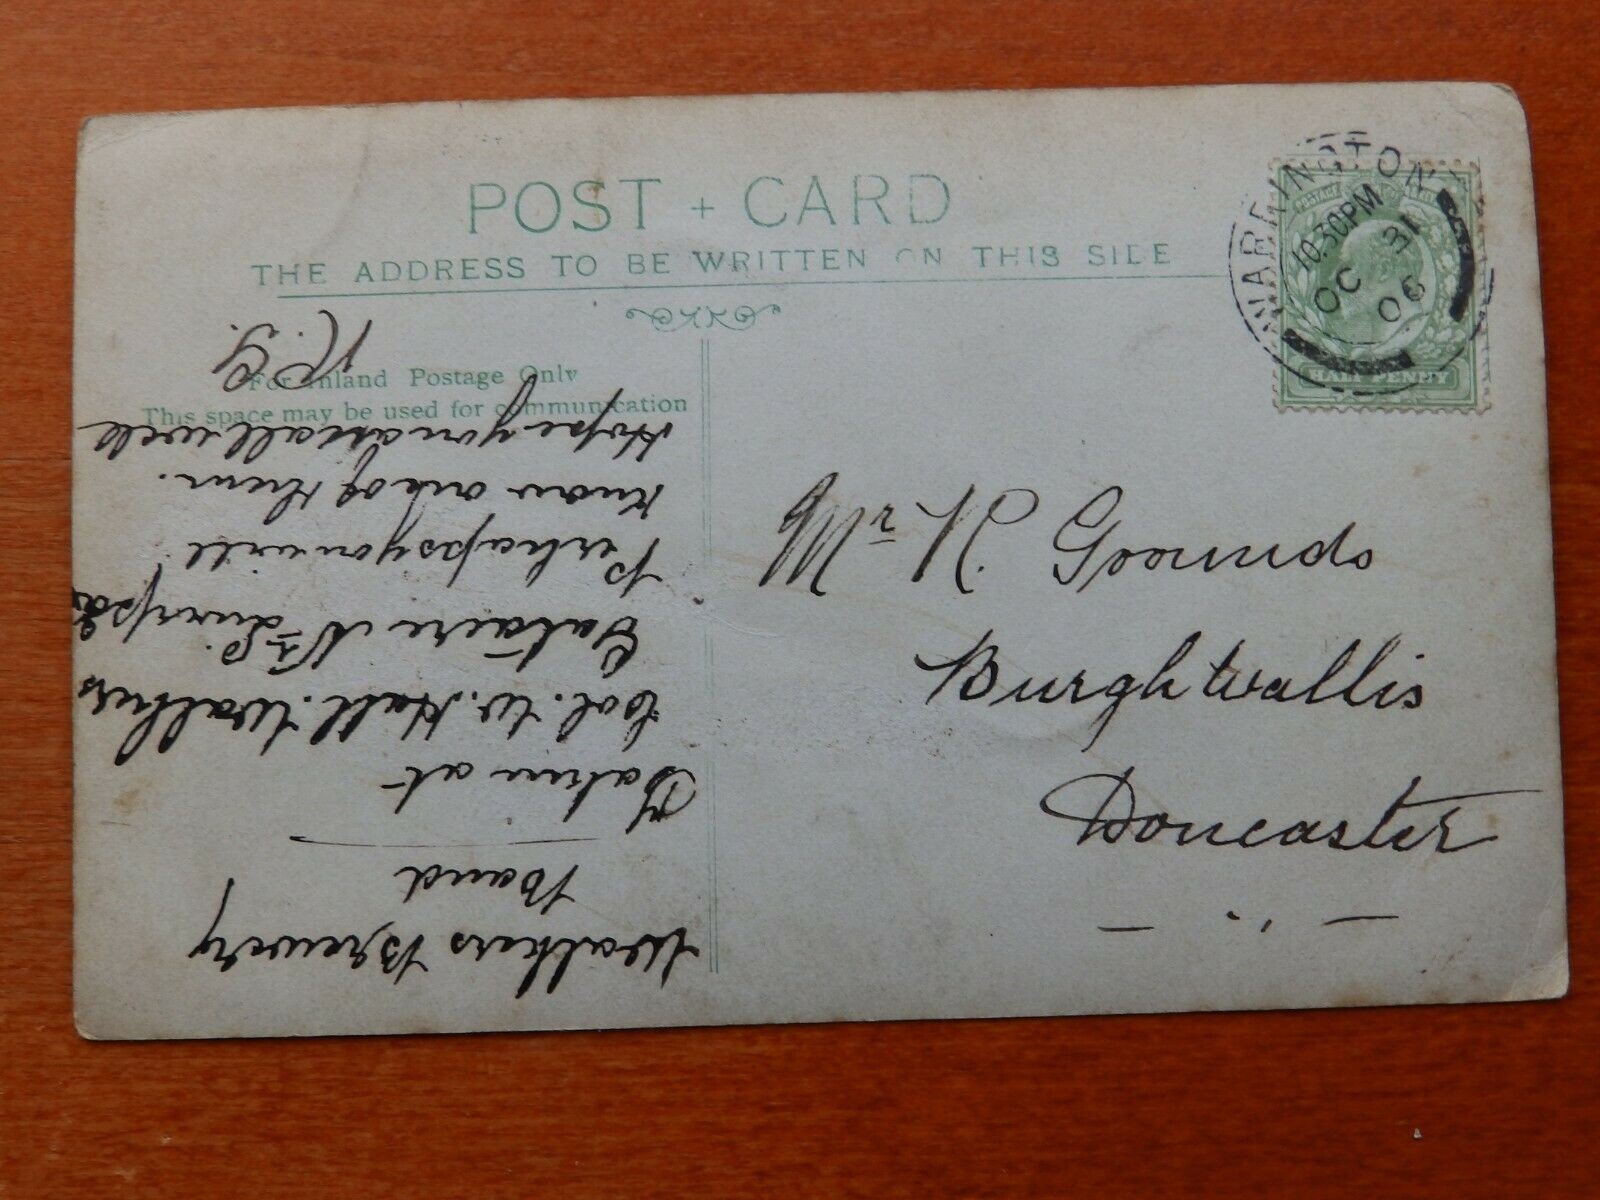 POST + CARD
THE ADDRESS TO BE WRITTEN ON THIS SIDE
For Inland Postage Only
This space may be used for communication
WARRINGTON
10.30PM
OC 31
06
HALF PENNY
Mr R. Grounds
Burghwallis
Doncaster
Walkers Brewery
Band
Taken at
Col. W. Hall. Walkers
Gatacre Nr L.pool
Perhaps you will
know one of them.
Hope you are all well
R.G.